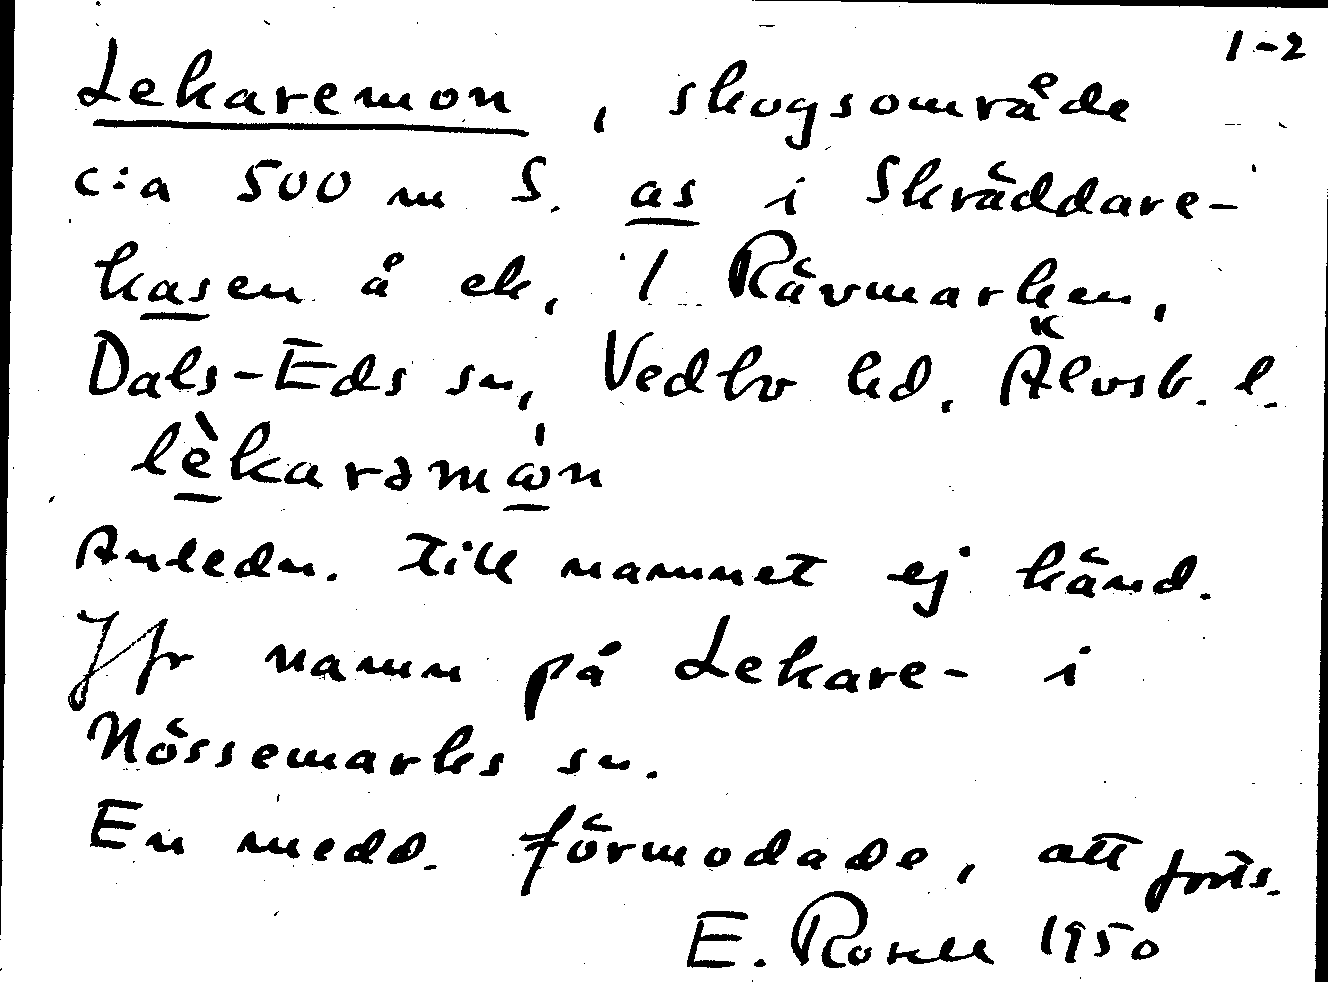 1-2
Lekaremon, skogsområde
c:a 500 m S. as i Skräddare-
kasen å ek. 1 Rävmarken,
Dals-Eds sn, Vedbo hd. Älvsb. l.
lèkarəmòn
Anledn. till namnet ej känd.
Jfr namn på Lekare- i
Nössemarks sn.
En medd. förmodade, att forts.
E. 1950